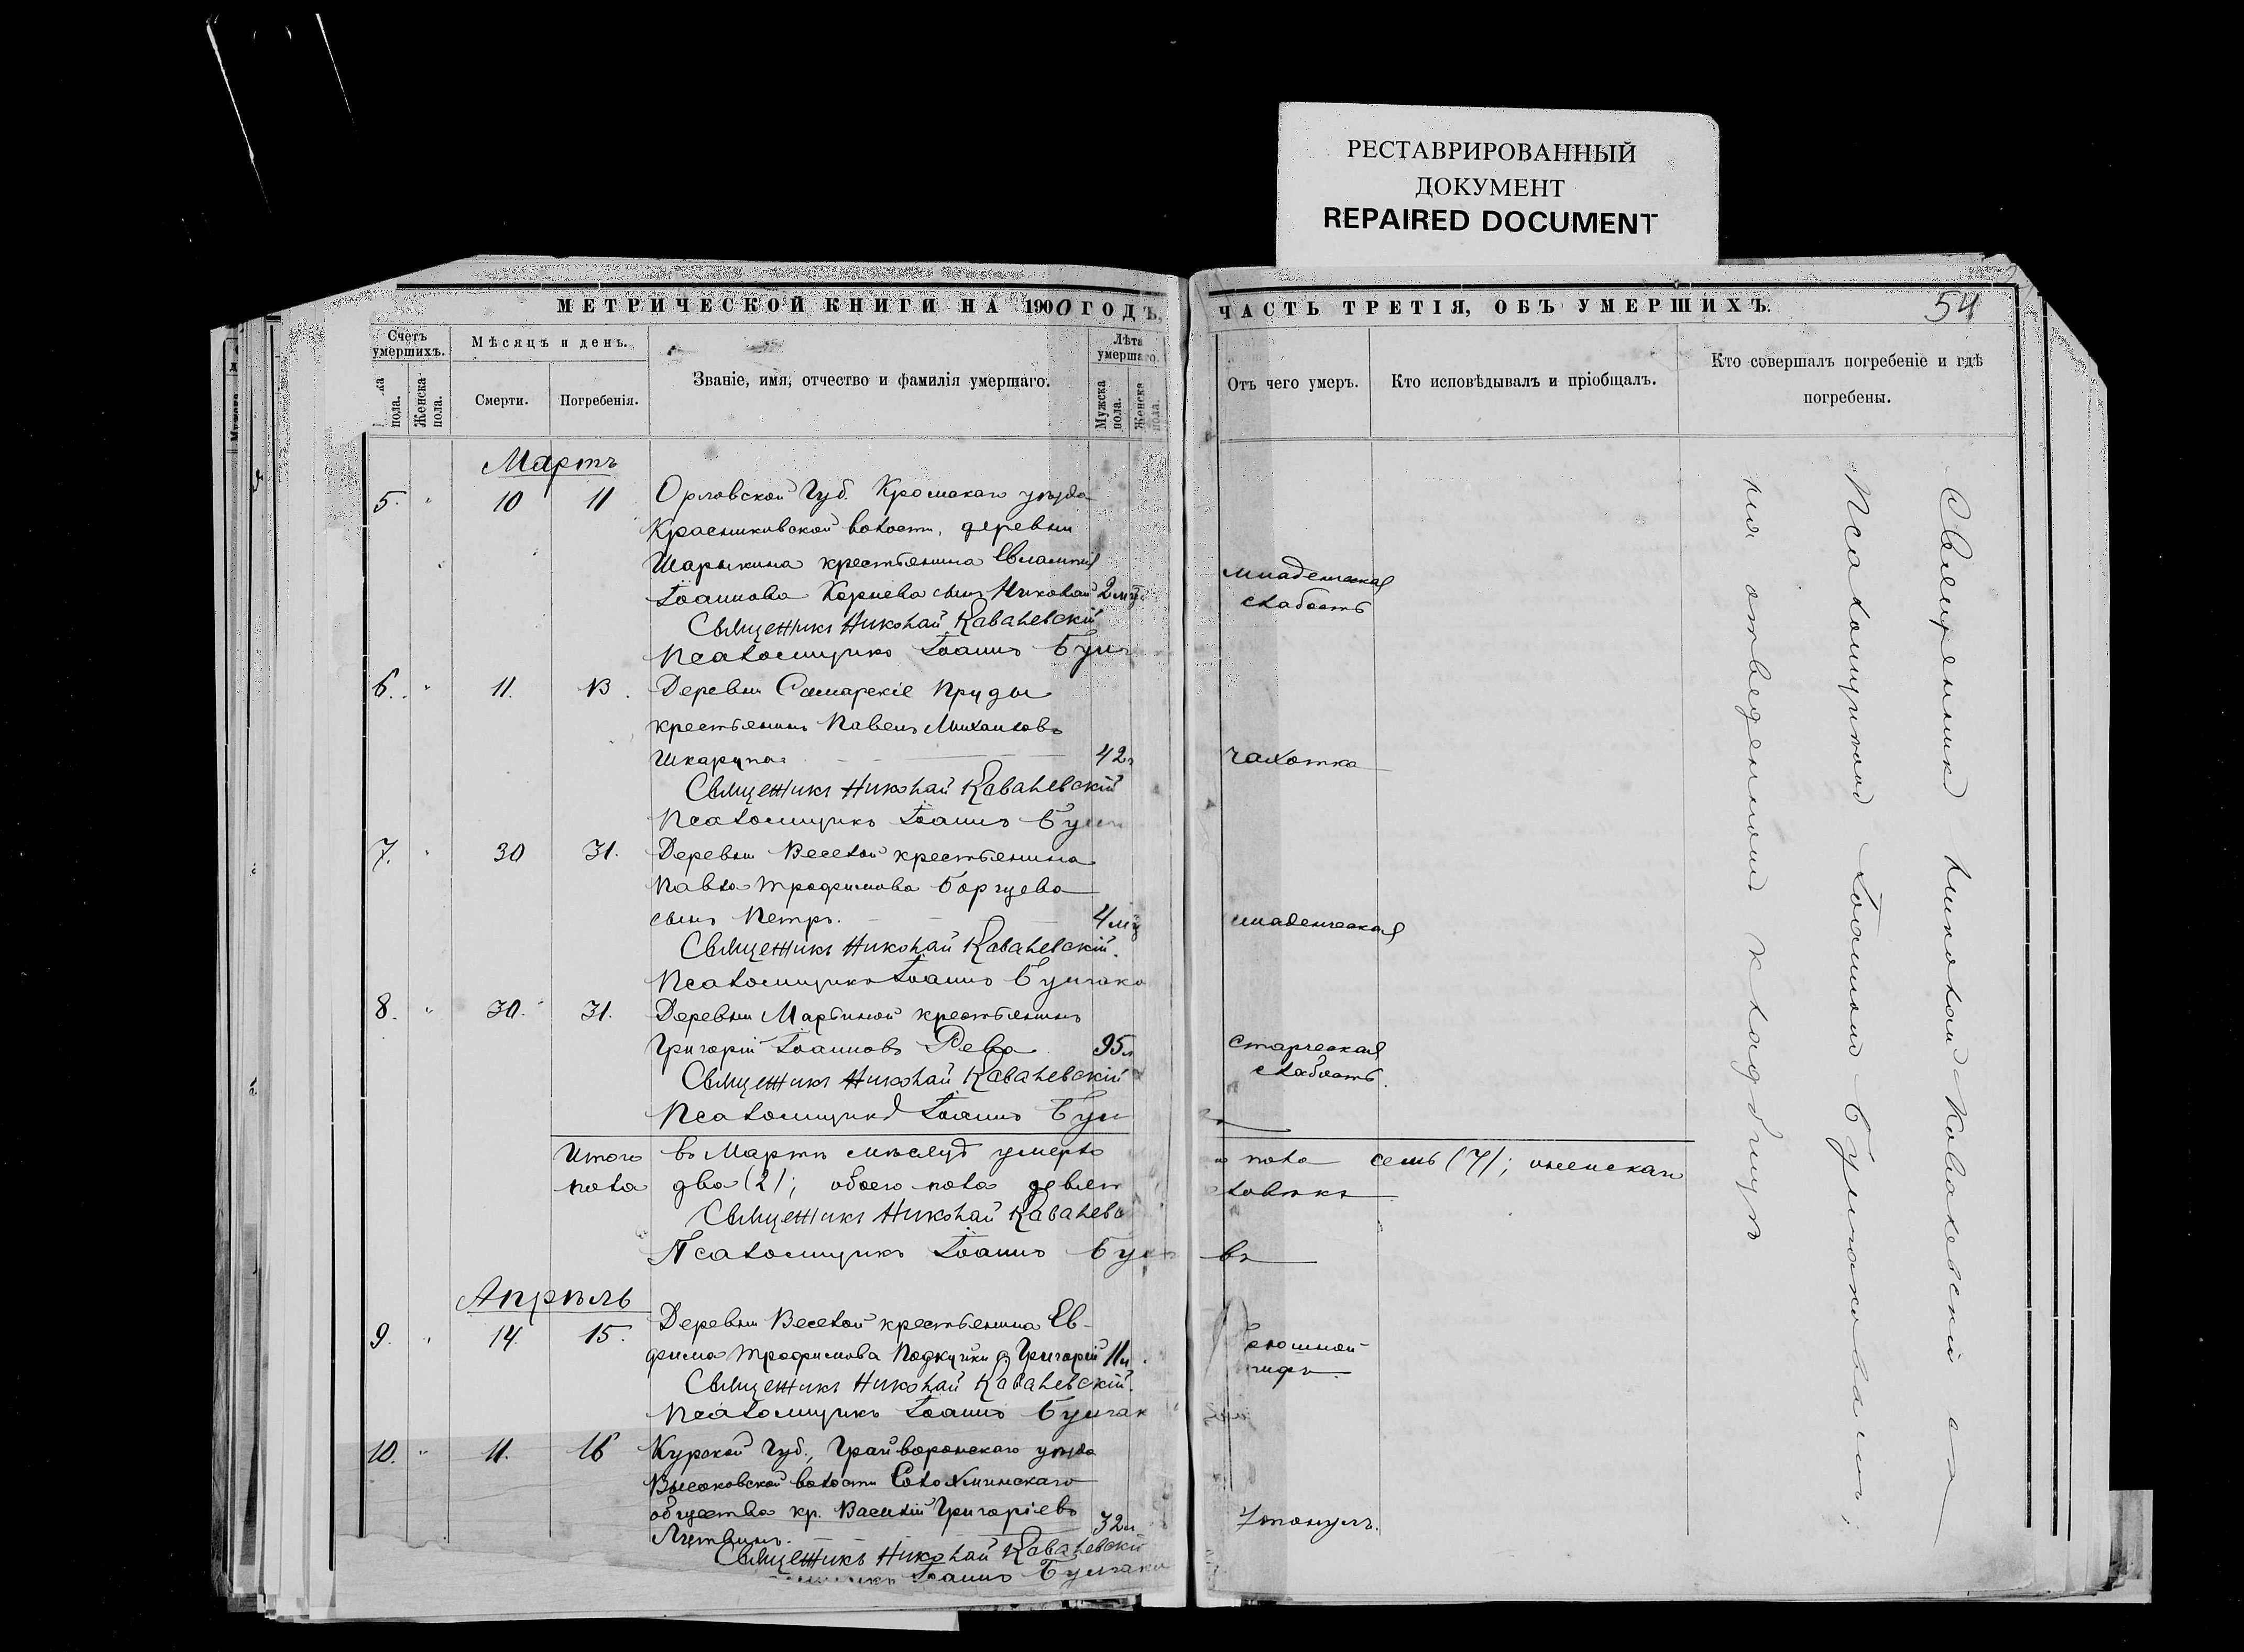 РЕСТАВРИРОВАННЫЙ
ДОКУМЕНТ
REPAIRED DOCUMENT
МЕТРИЧЕСКОЙ КНИГИ НА 1900 ГОДЪ,
Счетъ умершихъ.
Мѣсяцъ и день.
Званіе, имя, отчество и фамилія умершаго.
Лѣта умершаго.
пола.
Женска пола.
Смерти.
Погребенія.
Мужска пола.
Женска пола.
Мартъ
5. " 10 11 Орловской Губ. Кромскаго уѣзда
Красниковской волости, деревни
Шарыкина крестьянина Евлампія
Іоаннова Корнева сынъ Николай 2 м
Священникъ Николай Ковалевскій
Псаломщикъ Іоаннъ
6. " 11. 13. Деревни Самарскіе Пруды
крестьянинъ Павелъ Михаиловъ
Шкарупа 42
Священникъ Николай Ковалевскій
Псаломщикъ Іоаннъ
7. " 30 31. Деревни Веселой крестьянина
Павла Трофимова Борцева
сынъ Петръ. 4 м
Священникъ Николай Ковалевскій.
Псаломщикъ Іоаннъ Булгако
8. " 30. 31. Деревни Марьиной крестьянинъ
Григорій Іоанновъ Рева 95 л
Священникъ Николай Ковалевскій
Псаломщикъ Іоаннъ Бул
Итого въ Мартѣ мѣсяцѣ умерло
пола два (2); обоего пола девят
Священникъ Николай Ковалевс
Псаломщикъ Іоаннъ Бул
Апрѣль
9. " 14. 15. Деревни Веселой крестьянина Ев-
фима Трофимова Григорій 11
Священникъ Николай Ковалевскій.
Псаломщикъ Іоаннъ Булгак
10. " 11. 16 Курской Губ., Грайворонскаго уѣзда
Высоковской волости
общества кр. Василій Григоріевъ
Литвинъ. 32
Священникъ Николай Ковалевскій
Іоаннъ Булгако
ЧАСТЬ ТРЕТІЯ, ОБЪ УМЕРШИХЪ.
54
Отъ чего умеръ.
Кто исповѣдывалъ и пріобщалъ.
Кто совершалъ погребеніе и гдѣ погребены.
младенческая
слабость
чахотка
младенческая
старческая
слабость.
пола семь (7); женскаго
ловѣкъ
въ
брюшной
тифъ.
Утонулъ.
Священник Николай Ковалевскій съ
Псаломщикомъ Іоанномъ Булгаковымъ,
на отведенномъ кладбищѣ